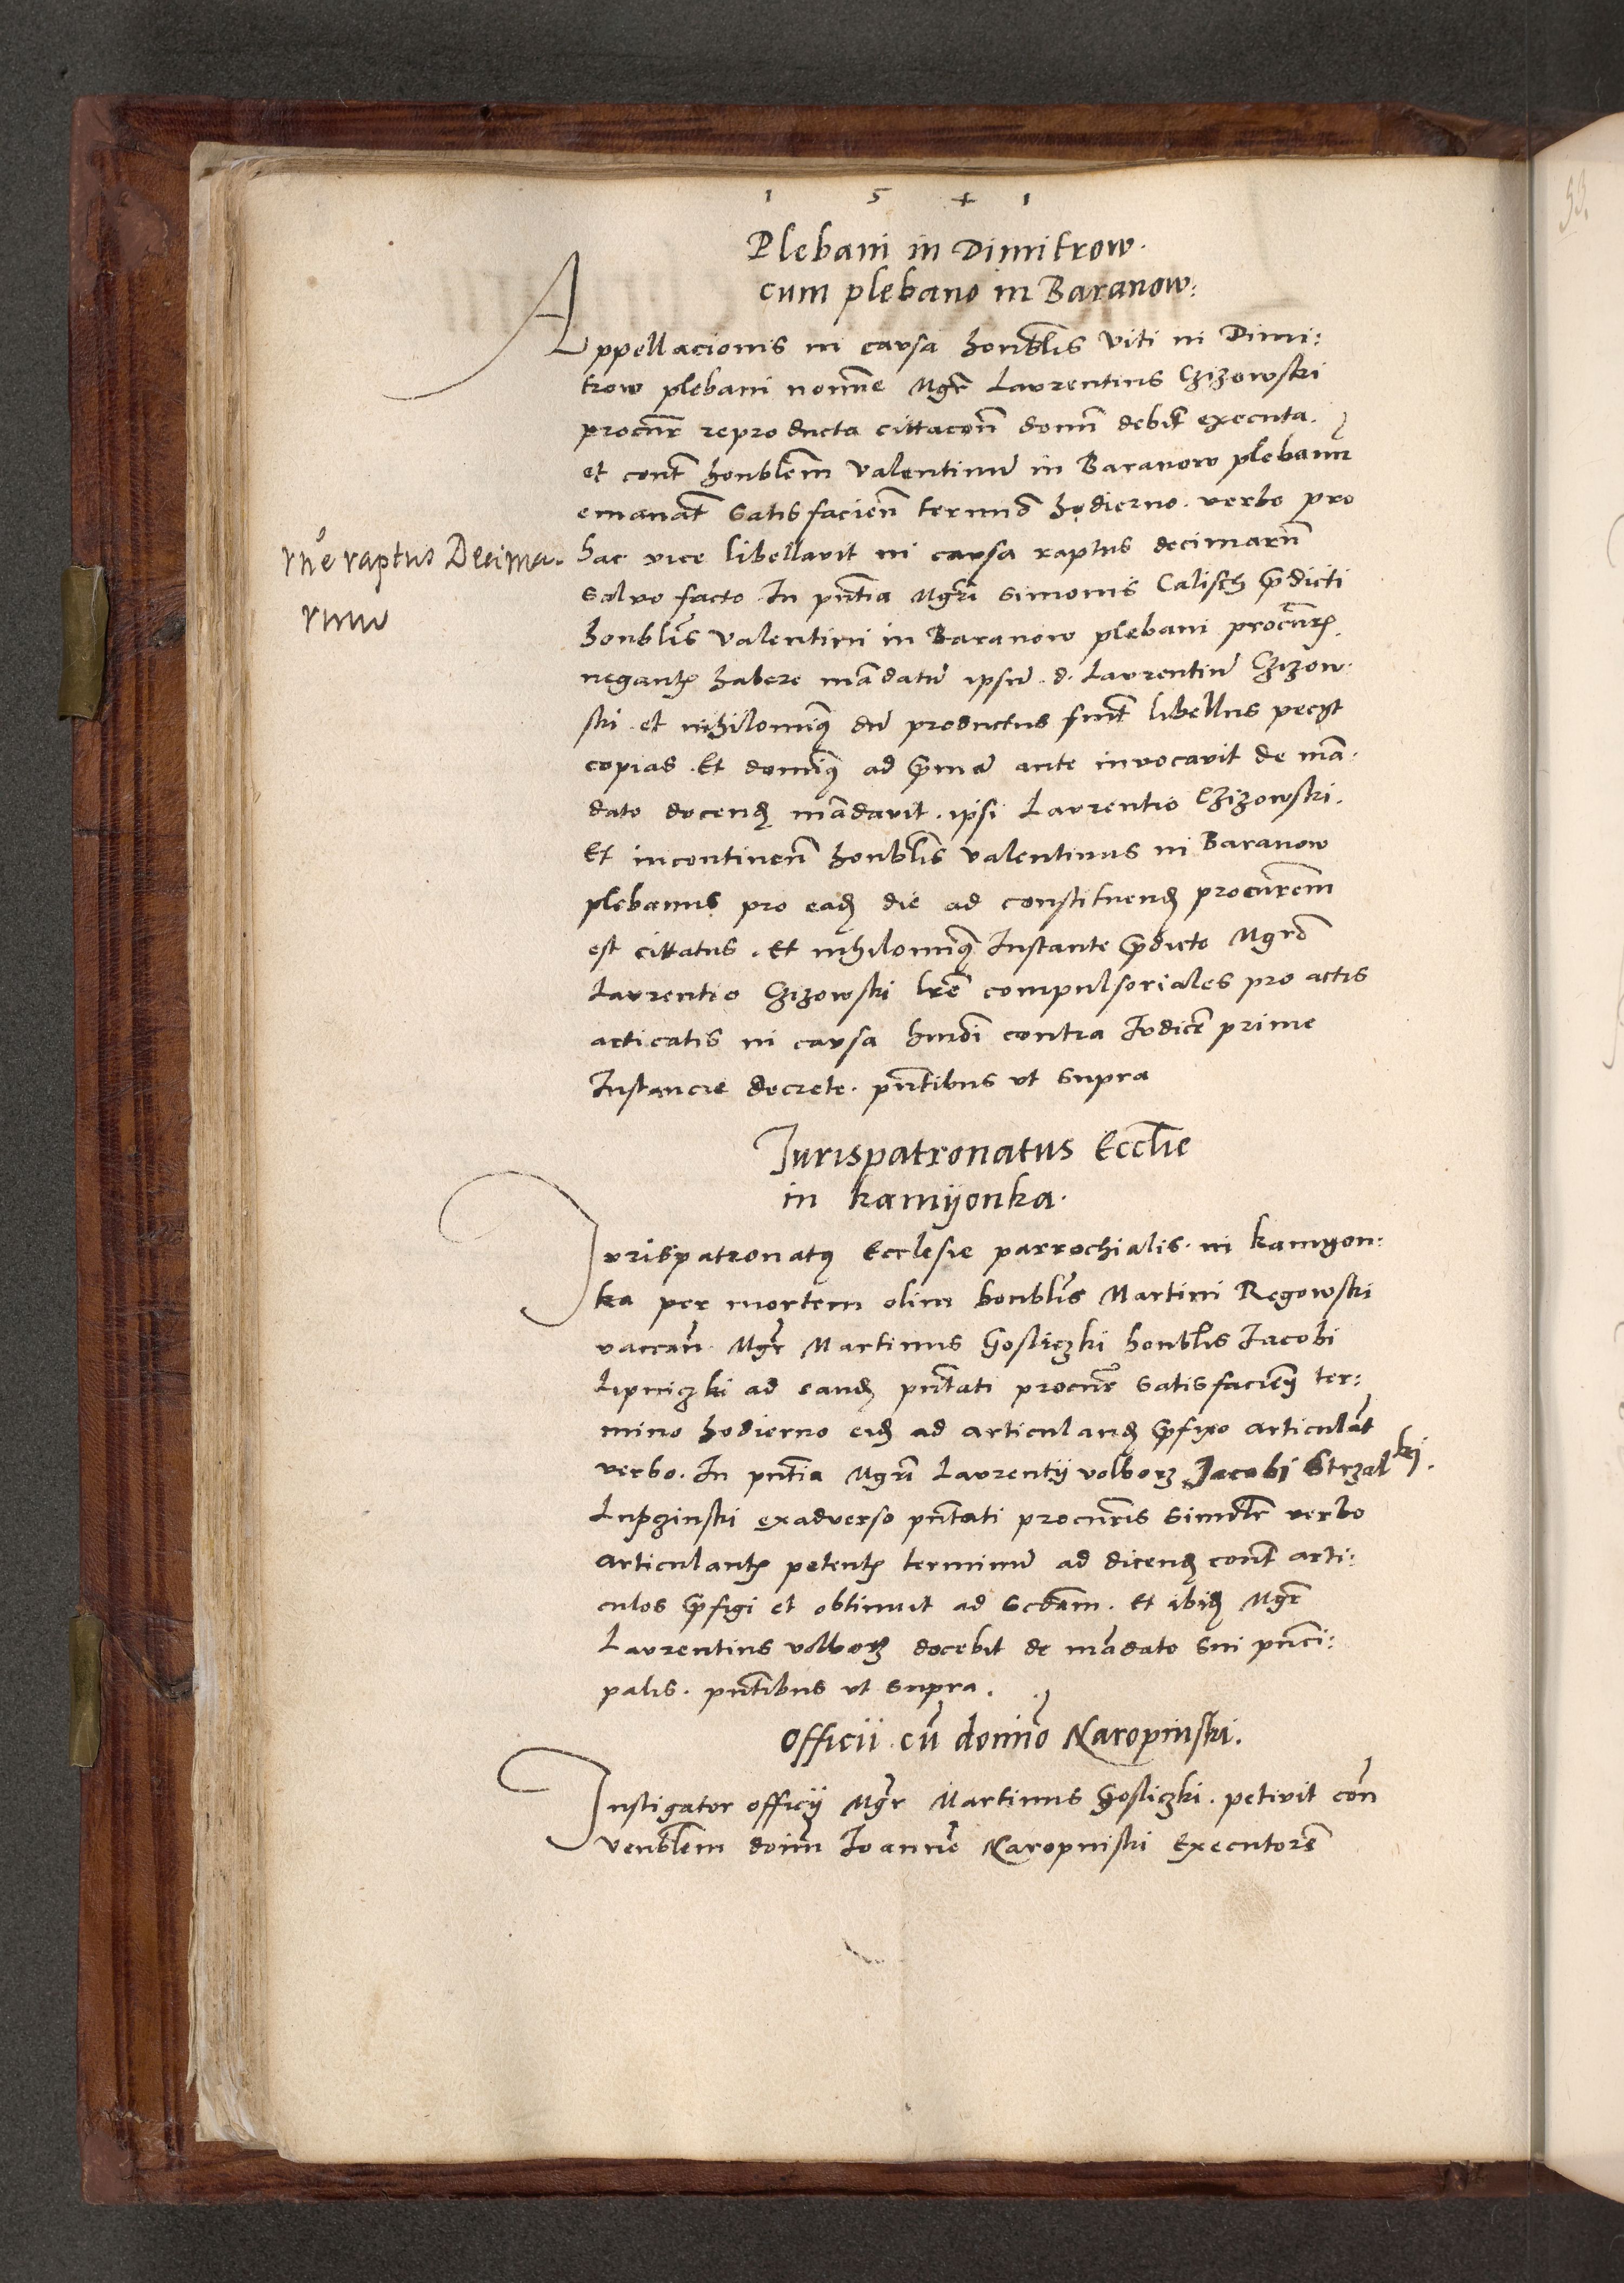 1 5 4 1
Plebani in Dimitrow.
cum plebano in Baranow:
Appellacionis in causa honblis Viti in Dimi:
trow plebani nomine Mgr Laurentius Czizowski
procur reproducta cittacon domn debit executa.
et cont honblem Valentinu in Baranow plebanu
emanat satisfacien termio hodierno. verbo pro
hac vice libellavit in causa raptus decimaru
rne raptus Decima.
rum
salvo facto In pntia Mgri Simonis Calisch pdicti
honblis Valentini in Baranow plebani procuris
negantis habere madatu ipsu d. Laurentiu Czizow
ski. et nihilominq du productus fuit libellus pecyt
copias. Et dominq ad pmu ante invocavit de ma:
dato docend madavit. ipsi Laurentio Czizowski.
Et incontinen honblis Valentinus in Baranow
plebanus pro ead die ad constituend procurem
est cittatus. Et nihilominq Instante pdicto Mgro
Laurentio Czizowski lre compulsoriales pro actis
acticatis in causa hmoi contra Iudice prime
Instancie decrete. pntibus ut supra
Jurispatronatus Ecclie
in Kamyonka.
Jurispatronatq Ecclesie parrochialis. in Kamyon:
ka per mortem olim honblis Martini Regowski
vacan. Mgr Martinus Gosliczki honblis Iacobi
Lipniczki ad eand pntati procur satisfacien ter:
mino hodierno eid ad articuland pfixo articulat
verbo. In pntia Mgri Laurentij Volborz Jacobi Strzalki.
Lupzinski exadverso pntati procuris similr verbo
articulantis petentis terminu ad dicend cont arti:
culos pfigi et obtinuit ad scdam. Et ibid Mgr
Laurentius Volborz docebit de madato sui princi:
palis. pntibus ut supra.
Officii cu domino Naropinski.
Instigator officij Mgr Martinus Gosliczki. petivit con
venblem domn Ioanne Naropinski Executore